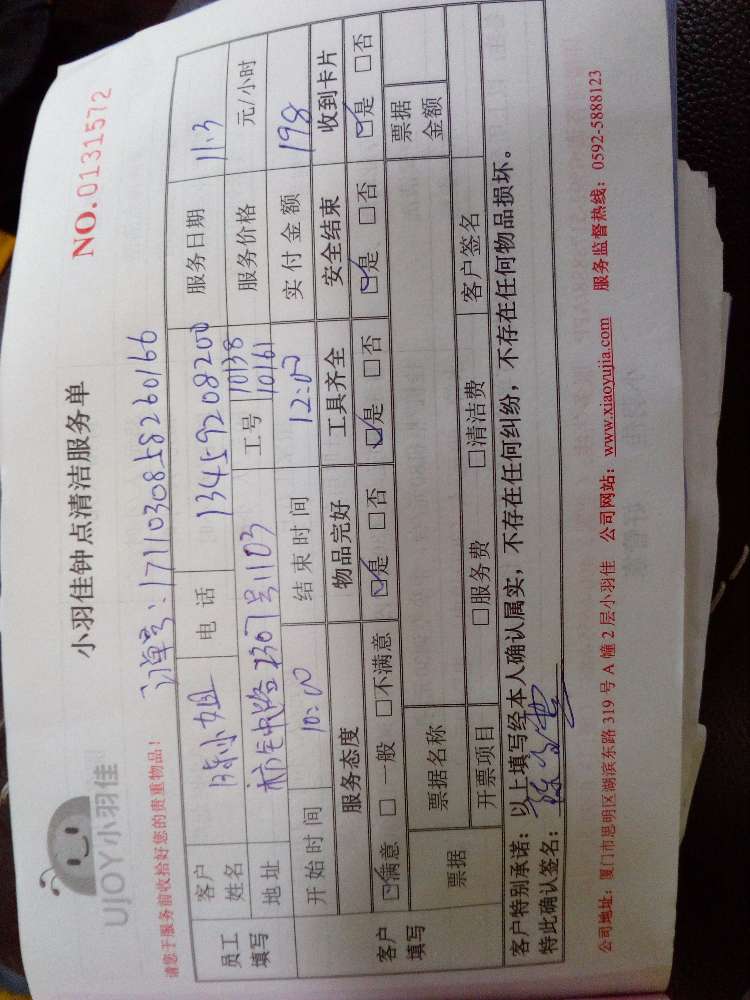 UJOY小羽佳
小羽佳钟点清洁服务单
NO.0131572
请您于服务前收拾好您的贵重物品!
订单号:1711030858260166
员工填写
客户姓名 陈小姐 电话 13459208200 服务日期 11.3
地址 路230号1103 工号 10138 10161 服务价格 元/小时
开始时间 10:00 结束时间 12:00 实付金额 198
客户填写
服务态度 物品完好 工具齐全 安全结束 收到卡片
☑满意 □一般 □不满意 ☑是 □否 ☑是 □否 ☑是 □否 ☑是 □否
票据 票据名称 票据金额
开票项目 □服务费 □清洁费 客户签名
客户特别承诺:以上填写经本人确认属实,不存在任何纠纷,不存在任何物品损坏。
特此确认签名:
公司地址:厦门市思明区湖滨东路 319 号 A 幢 2 层小羽佳 公司网站:www.xiaoyujia.com 服务监督热线:0592-5888123